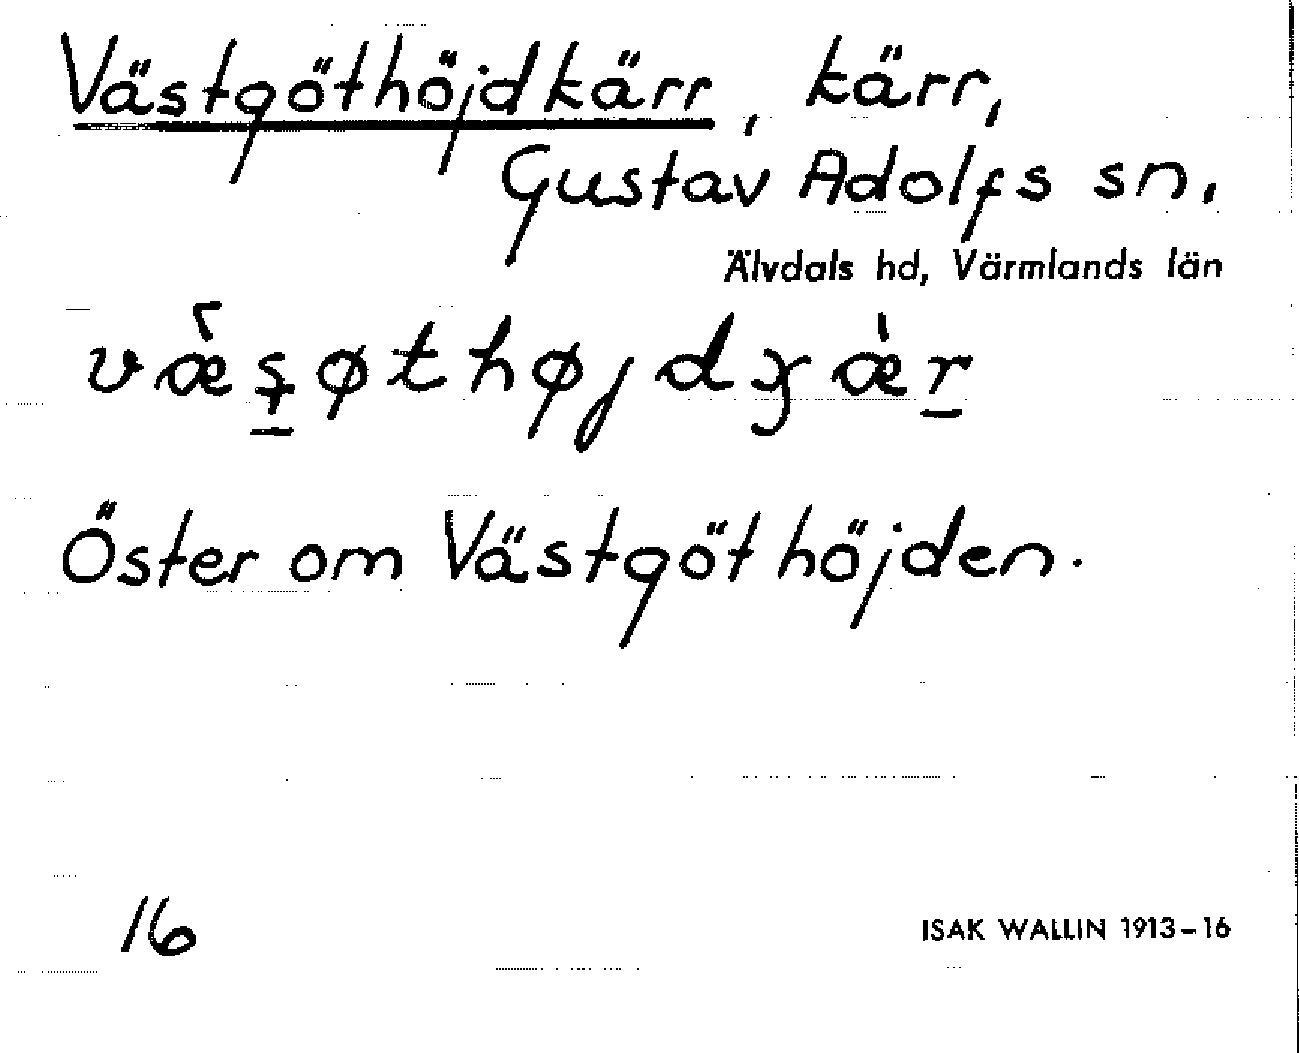 Västgöthöjdkärr, kärr,
Gustav Adolfs sn,
Älvdals hd, Värmlands län
Öster om Västgöthöjden.
16
ISAK WALLIN 1913-16